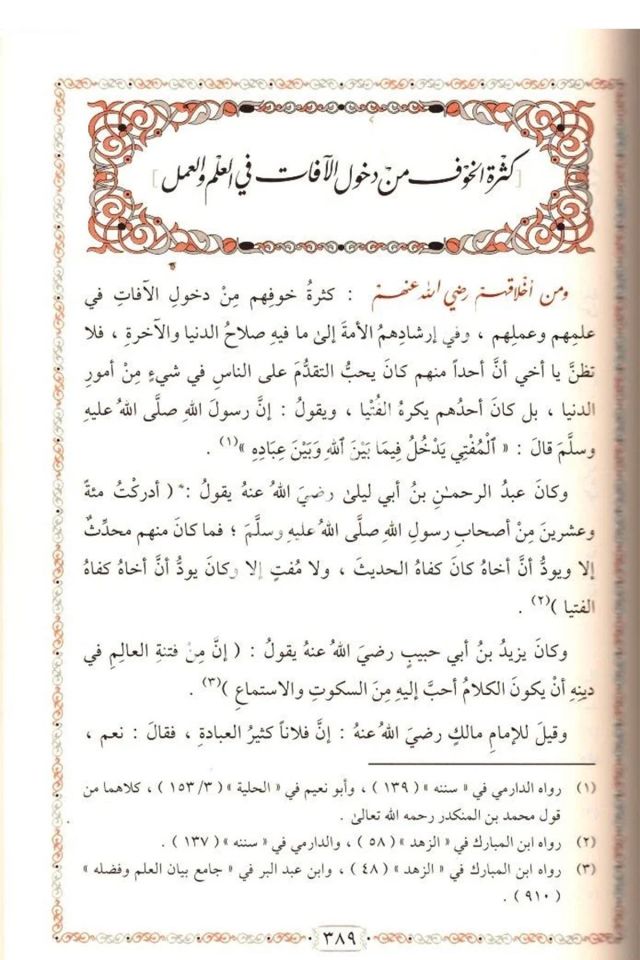 [كثرة الخوف من دخول الآفات في العلم والعمل]
ومن أخلاقهم رضي الله عنهم : كثرةُ خوفِهم مِنْ دخولِ الآفاتِ في
علمِهم وعملِهم ، وفي إرشادِهمُ الأمةَ إلىٰ ما فيهِ صلاحُ الدنيا والآخرةِ ، فلا
تظنَّ يا أخي أنَّ أحداً منهم كانَ يحبُّ التقدُّمَ على الناسِ في شيءٍ مِنْ أمورِ
الدنيا ، بل كانَ أحدُهم يكرهُ الفُتْيا ، ويقولُ : إنَّ رسولَ اللهِ صلَّى اللهُ عليهِ
وسلَّمَ قالَ : « ٱلْمُفْتِي يَدْخُلُ فِيمَا بَيْنَ ٱللهِ وَبَيْنَ عِبَادِهِ »(١) .
وكانَ عبدُ الرحمـٰنِ بنُ أبي ليلىٰ رضيَ اللهُ عنهُ يقولُ : ( أدركْتُ مئةً
وعشرينَ مِنْ أصحابِ رسولِ اللهِ صلَّى اللهُ عليهِ وسلَّمَ ؛ فما كانَ منهم محدِّثٌ
إلا ويودُّ أنَّ أخاهُ كانَ كفاهُ الحديثَ ، ولا مُفتٍ إلا وكانَ يودُّ أنَّ أخاهُ كفاهُ
الفتيا )(٢) .
وكانَ يزيدُ بنُ أبي حبيبٍ رضيَ اللهُ عنهُ يقولُ : ( إنَّ مِنْ فتنةِ العالِمِ في
دينِهِ أنْ يكونَ الكلامُ أحبَّ إليهِ مِنَ السكوتِ والاستماعِ )(٣) .
وقيلَ للإمامِ مالكٍ رضيَ اللهُ عنهُ : إنَّ فلاناً كثيرُ العبادةِ ، فقالَ : نعم ،
(١) رواه الدارمي في « سننه » ( ١٣٩ ) ، وأبو نعيم في « الحلية » ( ٣/ ١٥٣ ) ، كلاهما من
قول محمد بن المنكدر رحمه الله تعالىٰ .
(٢) رواه ابن المبارك في « الزهد » ( ٥٨ ) ، والدارمي في « سننه » ( ١٣٧ ) .
(٣) رواه ابن المبارك في « الزهد » ( ٤٨ ) ، وابن عبد البر في « جامع بيان العلم وفضله »
( ٩١٠ ) .
٣٨٩